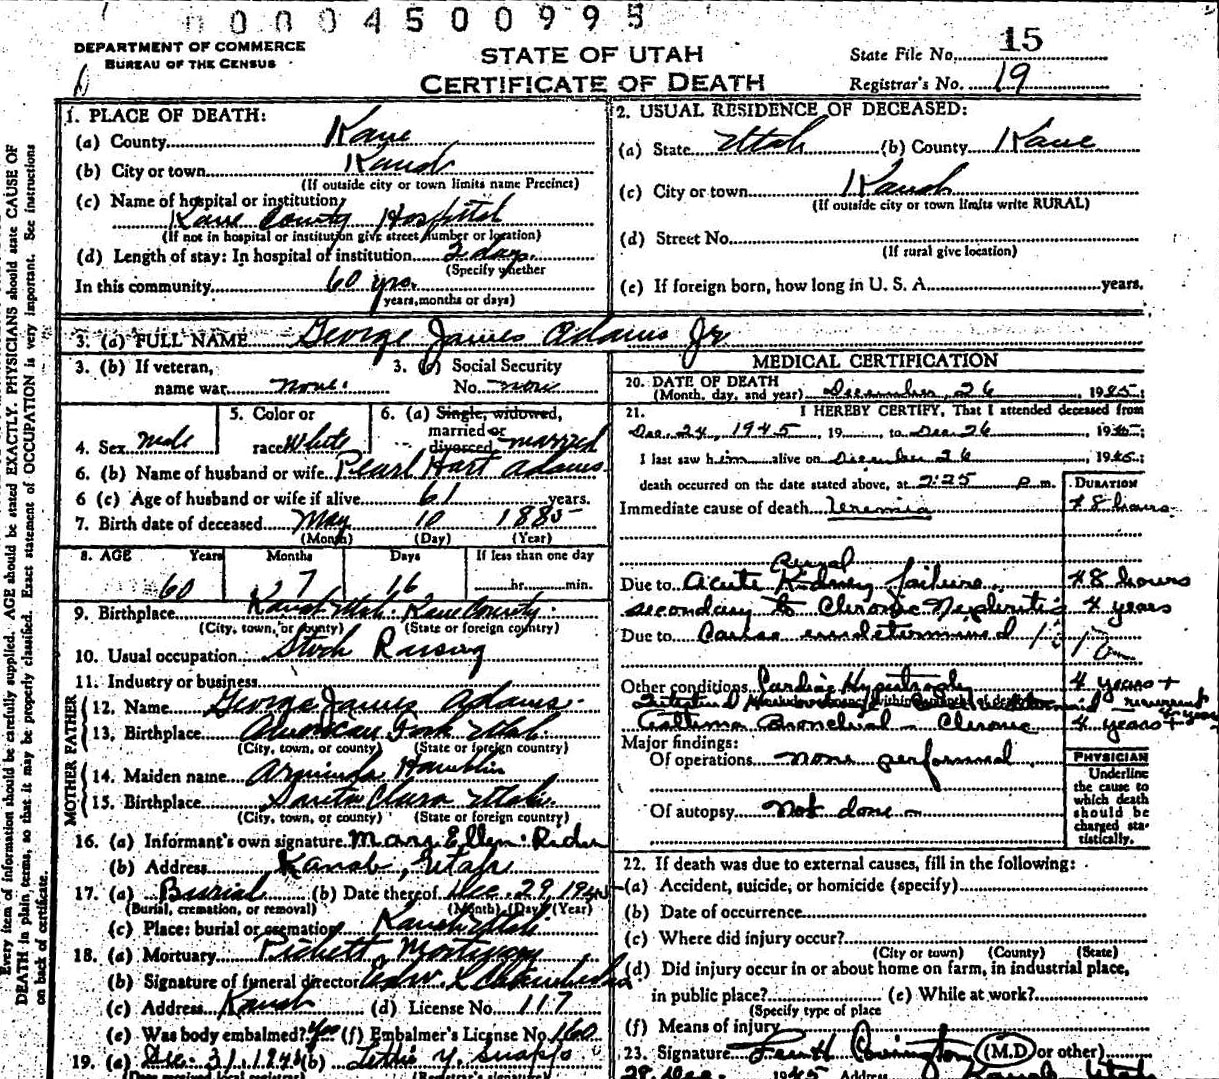 0004500995
DEPARTMENT OF COMMERCE
BUREAU OF THE CENSUS
STATE OF UTAH
CERTIFICATE OF DEATH
State File No. 15
Registrar's No. 19
1. PLACE OF DEATH:
(a) County Kane
(b) City or town Kanab
(If outside city or town limits name Precinct)
(c) Name of hospital or institution
Kane County Hospital
(If not in hospital or institution give street number or location)
(d) Length of stay: In hospital of institution 2 days.
(Specify whether
In this community 60 yrs.
years, months or days)
2. USUAL RESIDENCE OF DECEASED:
(a) State Utah (b) County Kane
(c) City or town Kanab
(If outside city or town limits write RURAL)
(d) Street No.
(If rural give location)
(e) If foreign born, how long in U. S. A. years.
3. (a) FULL NAME George James Adams Jr
3. (b) If veteran,
name war none.
3. (c) Social Security
No. none
4. Sex male
5. Color or
race White
6. (a) Single, widowed,
married or
divorced married
6. (b) Name of husband or wife Pearl Hart Adams
6 (c) Age of husband or wife if alive 61 years.
7. Birth date of deceased May 10 1885
(Month) (Day) (Year)
8. AGE Years Months Days If less than one day
60 7 16 hr. min.
9. Birthplace Kanab Utah. Kane County.
(City, town, or county) (State or foreign country)
10. Usual occupation Stock Raising
11. Industry or business
FATHER
12. Name George James Adams.
13. Birthplace American Fork Utah.
(City, town, or county) (State or foreign country)
MOTHER
14. Maiden name Arminda Hamblin
15. Birthplace Santa Clara Utah.
(City, town, or county) (State or foreign country)
16. (a) Informant's own signature Mary Ellen Rider
(b) Address Kanab, Utah
17. (a) Burial (b) Date thereof Dec. 29, 1945
(Burial, cremation, or removal) (Month) (Day) (Year)
(c) Place: burial or cremation Kanab Utah
18. (a) Mortuary Mortuary
(b) Signature of funeral director
(c) Address Kanab (d) License No. 117
(e) Was body embalmed? Yes (f) Embalmer's License No. 160
19. (a) Dec. 31, 1945 (b)
(Date received local registrar) (Registrar's signature)
MEDICAL CERTIFICATION
20. DATE OF DEATH
(Month, day, and year) December, 26, 1945;
21. I HEREBY CERTIFY, That I attended deceased from
Dec. 24, 1945, 19, to Dec 26 1945;
I last saw him alive on December 26 1945;
death occurred on the date stated above, at 2:25 p. m.
DURATION
Immediate cause of death Uremia 48 hours.
Renal
Due to Acute Kidney failure. 48 hours
secondary to Chronic Nephritis 4 years
Due to Cause undetermined
Other conditions Cardiac Hypertrophy 4 years +
Asthma Bronchial - Chronic 4 years +
Major findings:
Of operations none performed
Of autopsy Not done
PHYSICIAN
Underline
the cause to
which death
should be
charged sta-
tistically.
22. If death was due to external causes, fill in the following:
(a) Accident, suicide, or homicide (specify)
(b) Date of occurrence
(c) Where did injury occur?
(City or town) (County) (State)
(d) Did injury occur in or about home on farm, in industrial place,
in public place? (e) While at work?
(Specify type of place
(f) Means of injury
23. Signature Covington (M.D. or other)
28. Dec. 1945 Address Kanab Utah
Every item of information should be carefully supplied. AGE should be stated EXACTLY. PHYSICIANS should state CAUSE OF
DEATH in plain terms, so that it may be properly classified. Exact statement of OCCUPATION is very important. See instructions
on back of certificate.